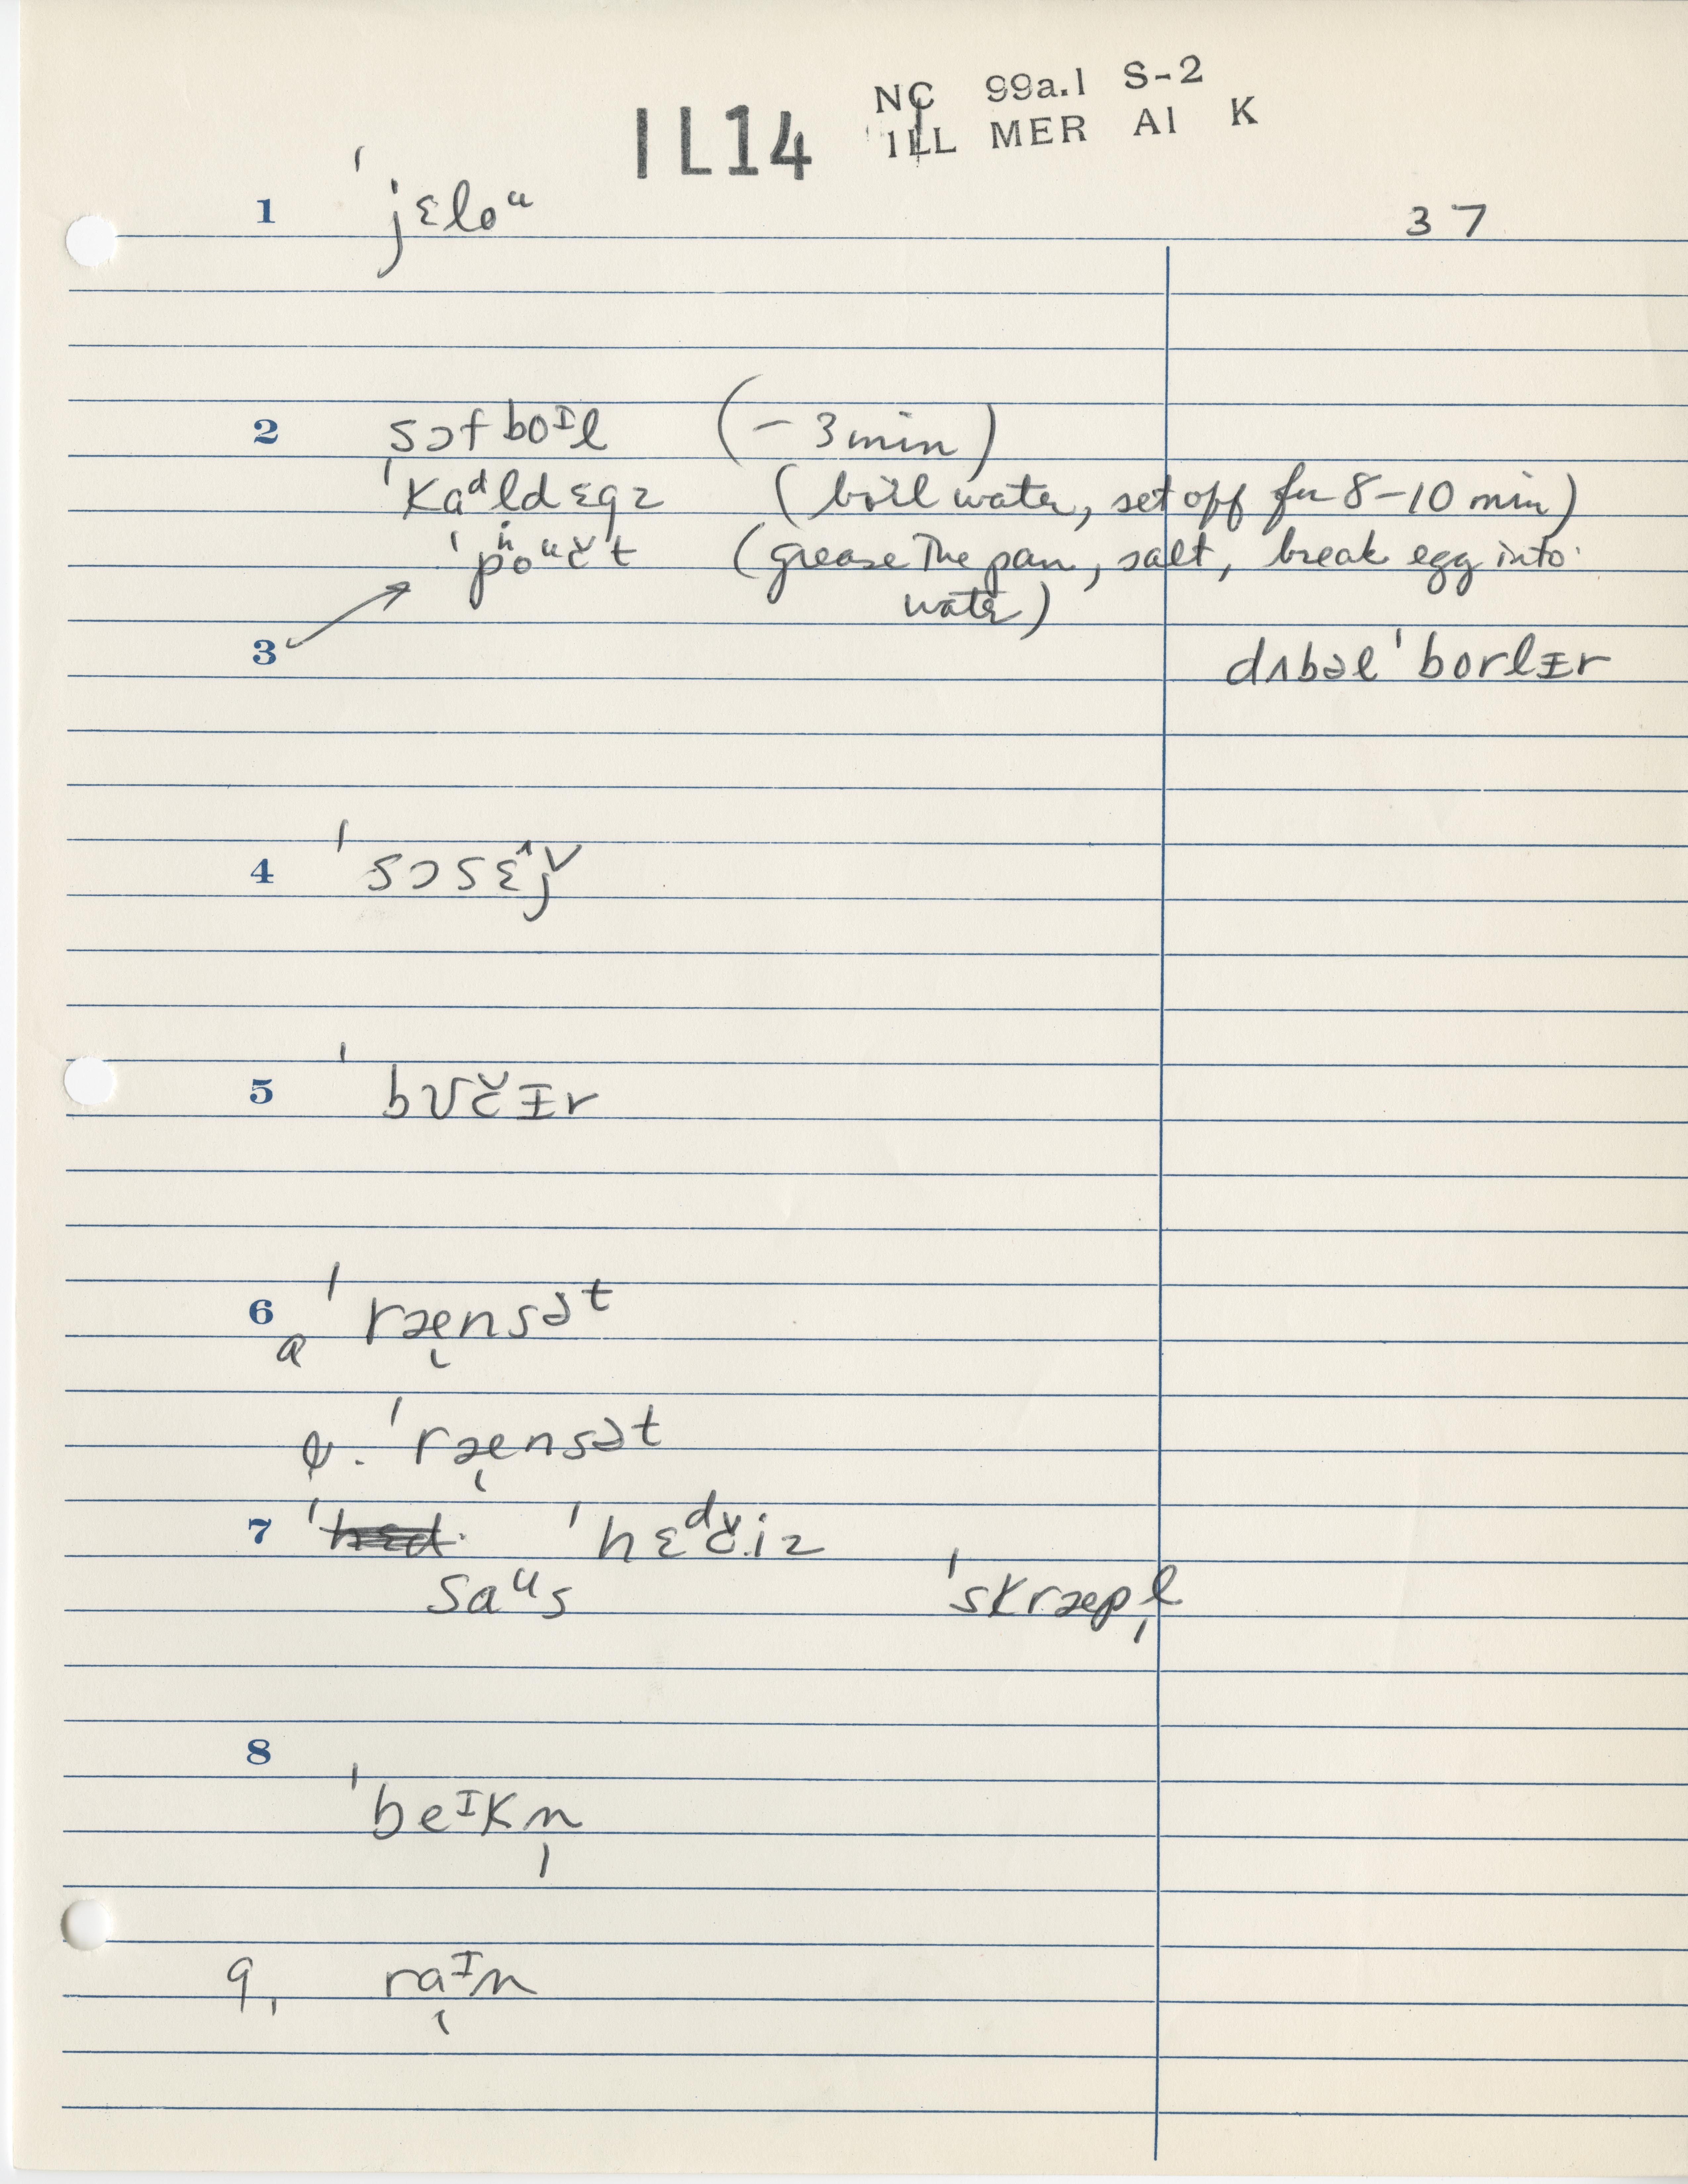 NC 99a.1 S-2
IL14 ILL MER A1 K
37
1 ˈjɛloᵘ
2 sɔfboᶦl (– 3 min)
ˈkaᵈldɛgz (boil water, set off for 8–10 min)
ˈpoᵘčt (grease the pan, salt, break egg into
water)
3 dʌbəlˈborlɪr
4 ˈsɔsɛǰ
5 ˈbʊčɪr
6 ˈrænsət
a
. ˈrænsət
7 ˈhɛᵈčiz
saᵘs ˈskræpl̩
8
ˈbeᶦkn̩
9. raᶦn